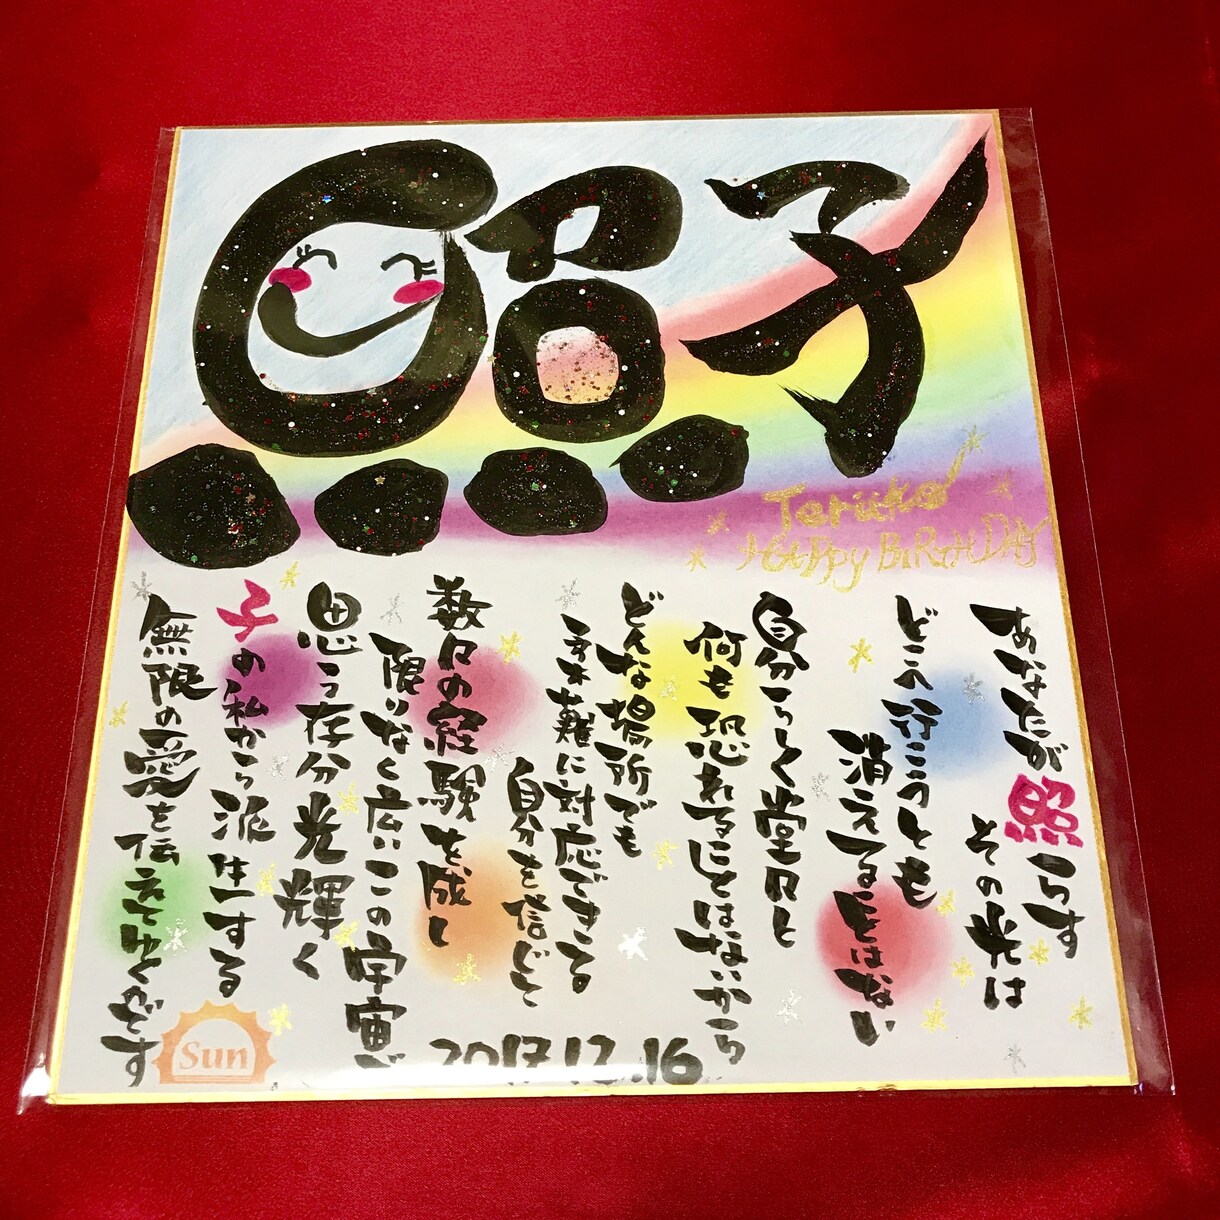 照子
Teruko
HAPPY BiRtH DAY
あなたが照らす
その光は
どこへ行こうとも
消えることはない
自分らしく堂々と
何も恐れることはないから
どんな場所でも
難に対応できる
自分を信じて
数々の経験を成し
限りなく広いこの宇宙で
思う存分光輝く
子の私から派生する
無限の愛を伝えてゆくのです
2017.12.16
Sun